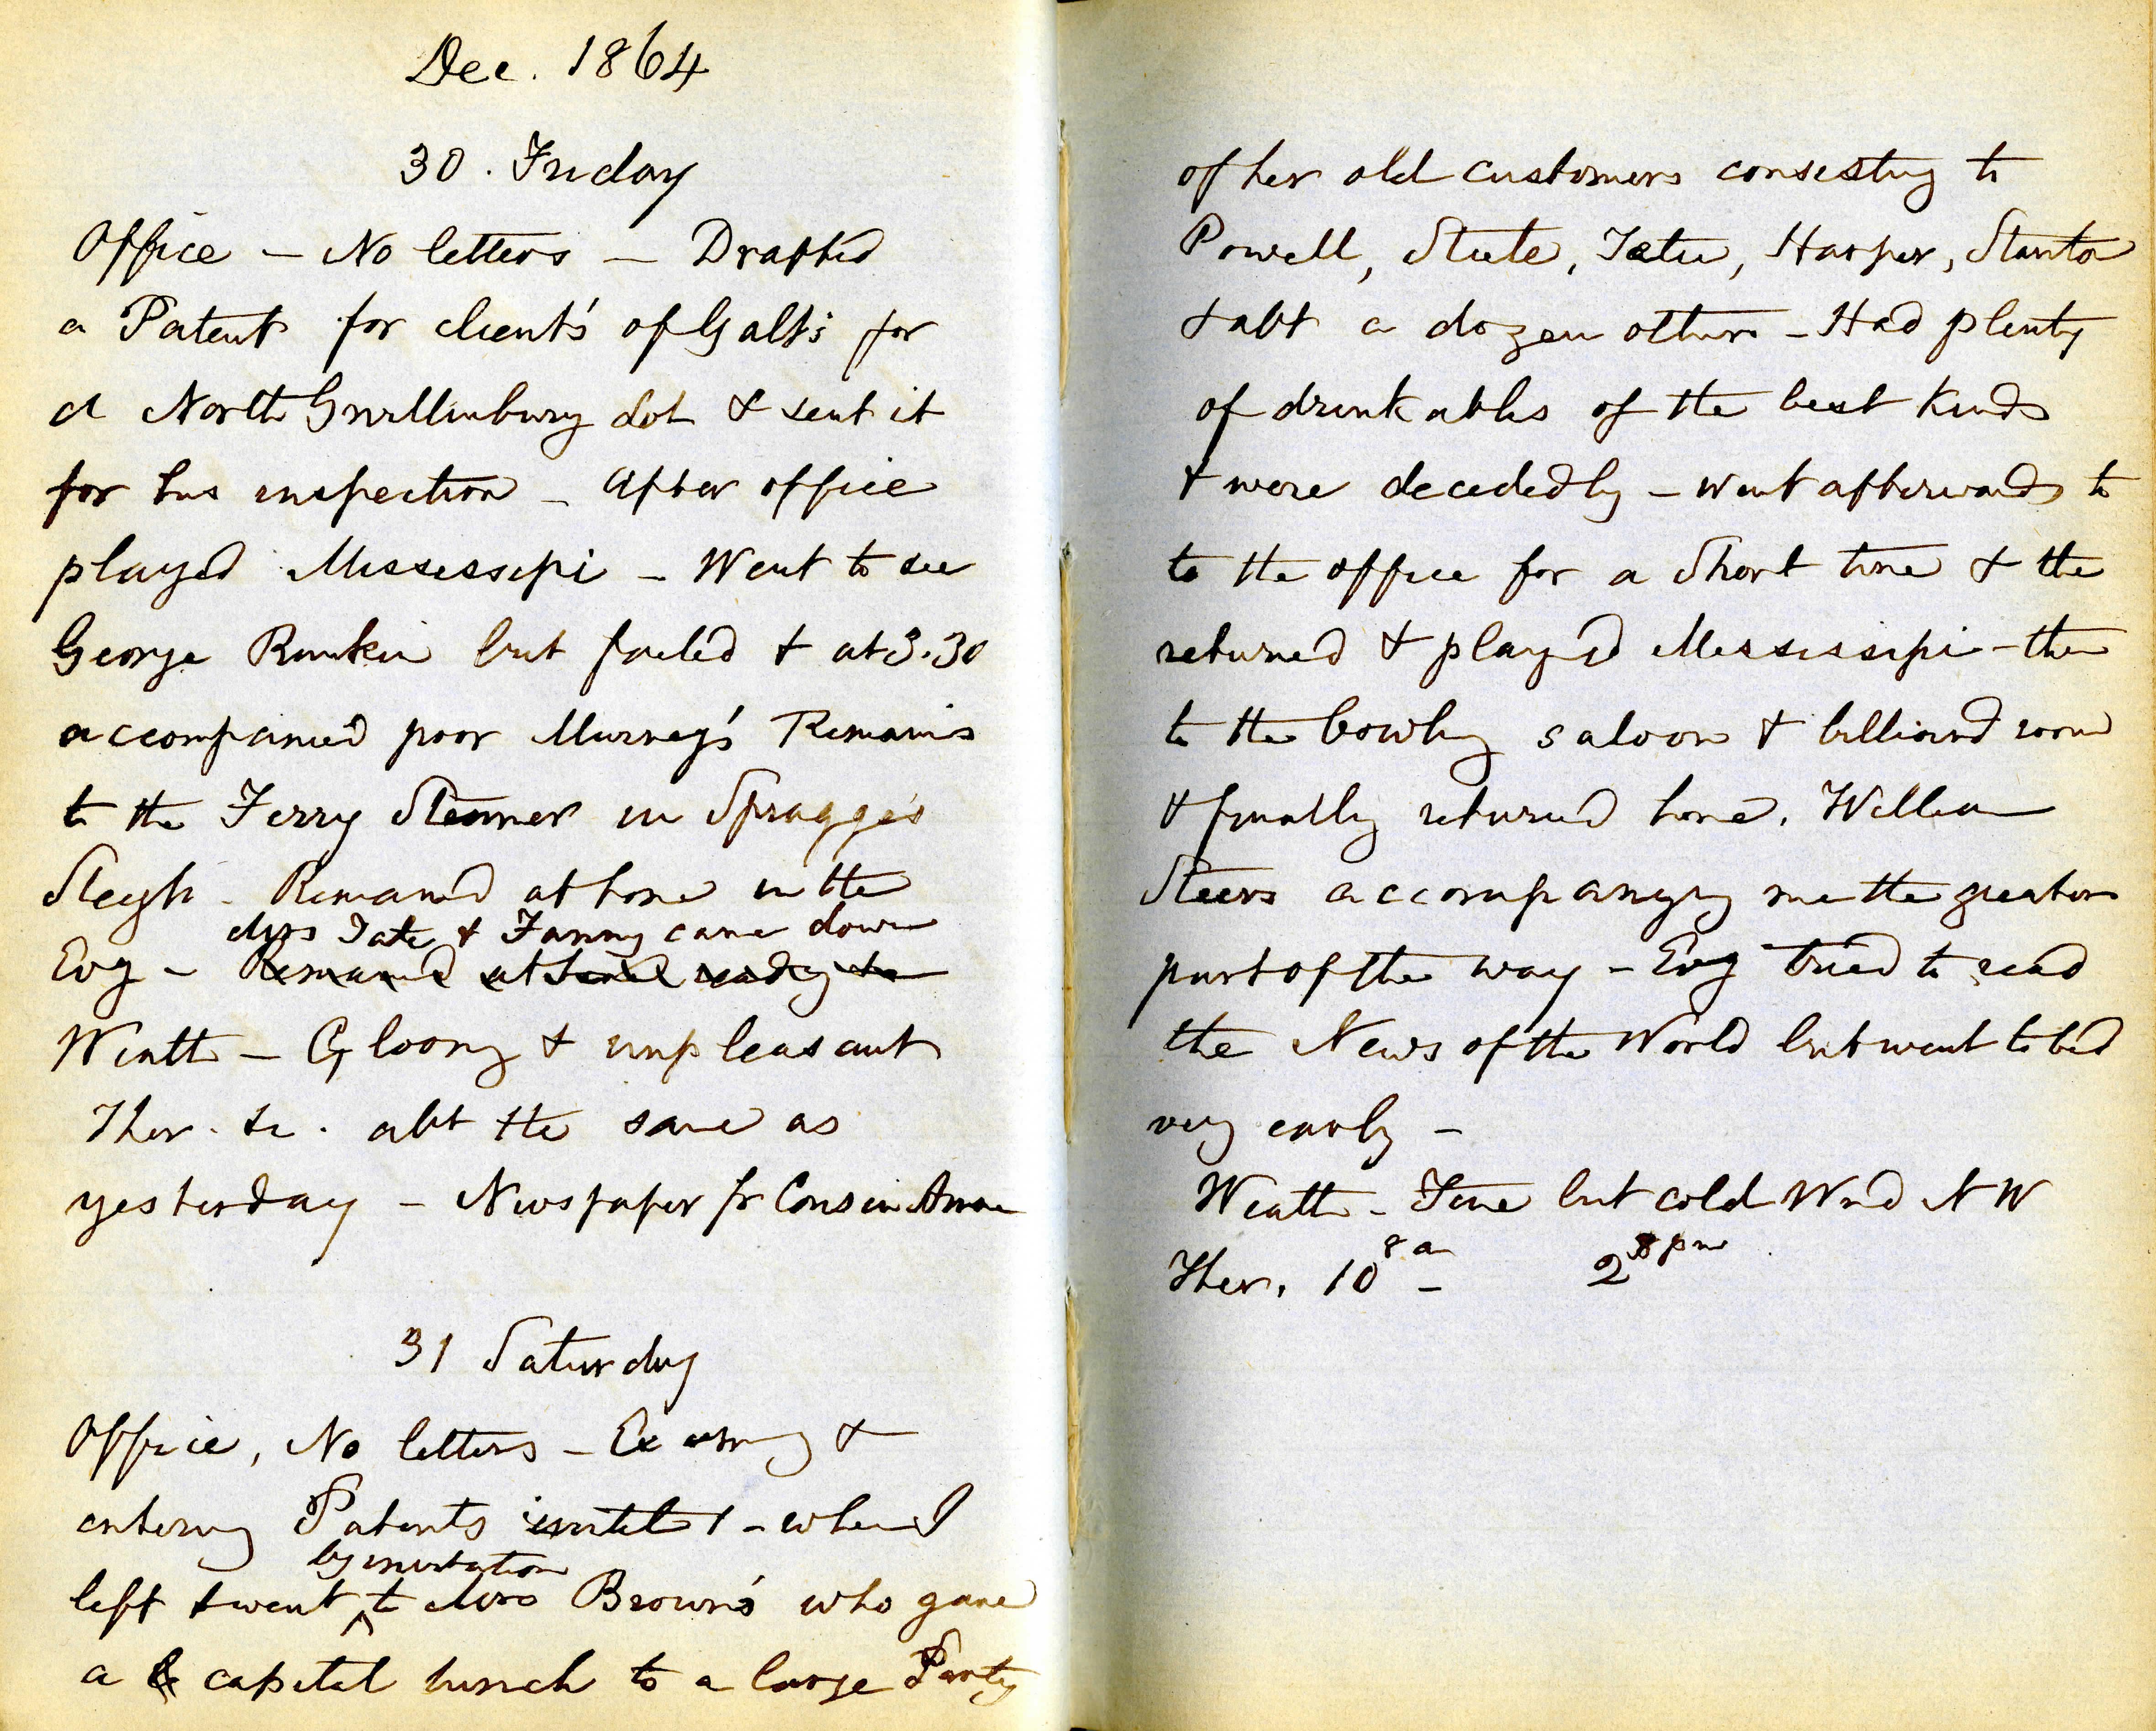 Dec. 1864
30. Friday
Office – No letters – Drafted
a Patent for client's of Galt's for
a North Gwillimbury Lot & sent it
for his inspection – After office
played Mississipi – Went to see
George Rankin but failed & at 3.30
accompanied poor Murney's Remains
to the Ferry Steamer in Spragge's
Sleigh – Remained at home in the
Mrs Tate & Fanny came down
Evg – Remained at home ready to
Weath – Gloomy & unpleasant
Ther. &c. abt the same as
yesterday – Newspaper fr Cousin
31 Saturday
Office, No letters – &
entering Patents until 1 – when I
by invitation
left & went to Mrs Brown's who gave
a capital lunch to a large Party
of her old customers consisting to
Powell, Steele, Tate, Harper, Stanton
& abt a dozen others – Had plenty
of drinkables of the best kinds
& were decidedly – went afterwards to
to the office for a Short time & the
returned & played Mississipi – then
to the bowling saloon & billiard room
& finally returned home. William
Steers accompanying me the greater
part of the way – Evg tried to read
the News of the World but went to bed
very early –
Weath – Fine but cold Wind N W
Ther. 10 8 a – 2 8 pm